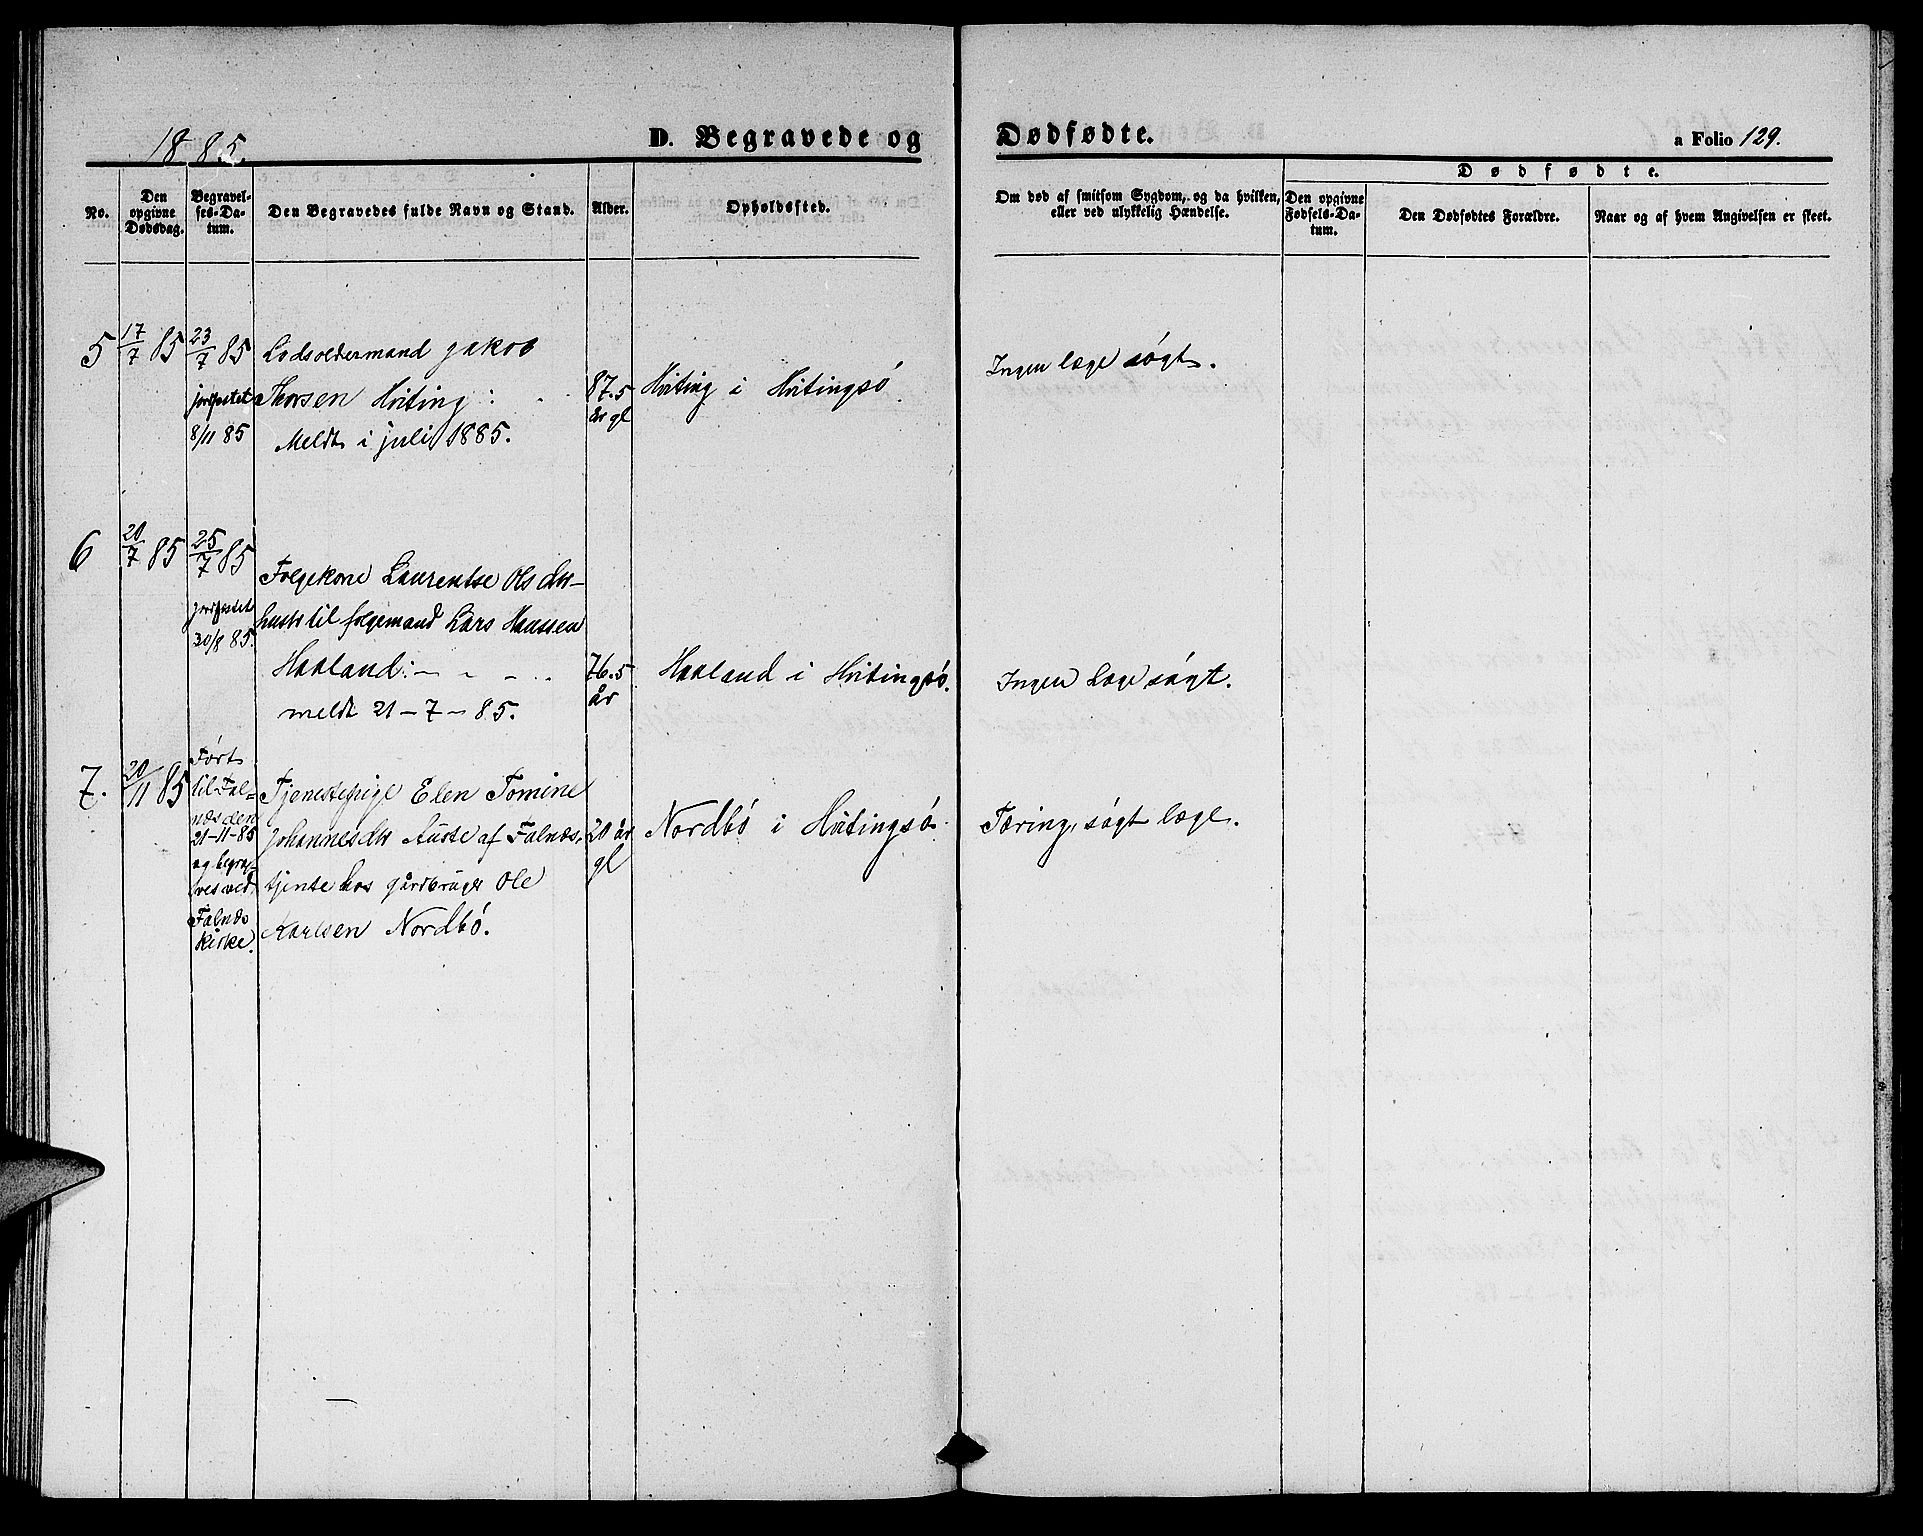 1885.
D. Begravede og Dødfødte.
a Folio 129.
No.
Den opgivne Dødsdag.
Begravelses-Datum.
Den Begravedes fulde Navn og Stand.
Alder.
Opholdssted.
Om død af smitsom Sygdom, og da hvilken,
eller ved ulykkelig Hændelse.
Dødfødte.
Den opgivne Fødsels-Datum.
Den Dødfødtes Forældre.
Naar og af hvem Angivelsen er skeet.
5
17/7 85
23/7 85
jordfestet
8/11 85
Lodsoldermand Jakob
Thorsen Hviting :
Meldt i juli 1885.
87.5
år gl
Hviting i Hvitingsö
Ingen læge søgt.
6
20/7 85
25/7 85
jordfestet
30/8 85.
Folgekone Laurentse Olsdtr
hustr til folgemand Lars Hanssen
Haaland:-
meldt 21-7-85.
76.5
år
Haaland i Hvitingsö.
Ingen Læge søgt.
7.
20/11 85
Ført
til Fal=
næs den
21-11-85
og begra-
ves ved
Falnæs
kirke.
Tjenestepige Elen Tomine
Johannesdtr Auste af Falnæs,
tjente hos gårdbruger Ole
Karlsen Nordbö.
20 år
gl
Nordbö i Hvitingsö
Tæring, søgt læge.